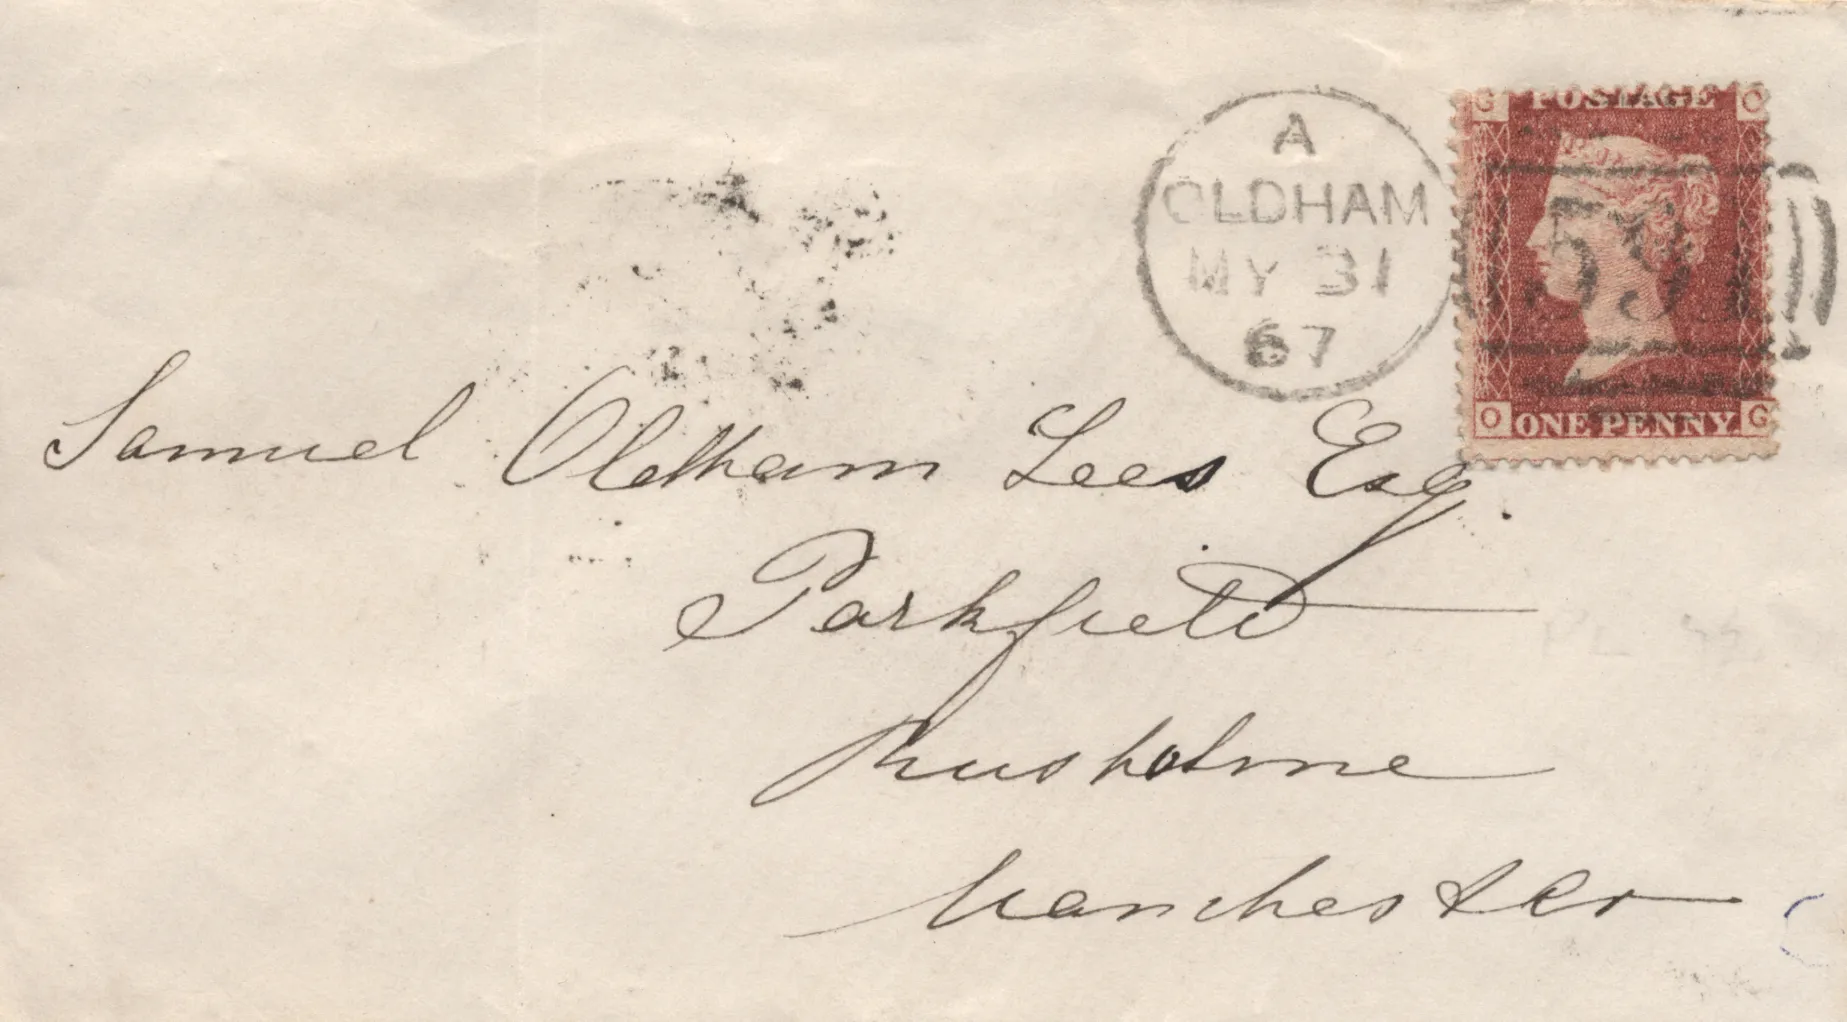 A
OLDHAM
MY 31
67
G POSTAGE O
591
O ONE PENNY G
Samuel Oldham Lees Esq.
Parkfield
Rusholme
Manchester